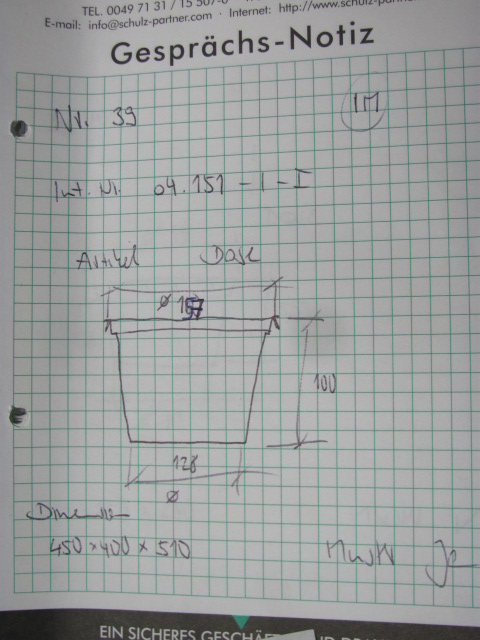 TEL. 0049 71 31 / 15 507-0
E-mail: info@schulz-partner.com · Internet: http://www.schulz-partner
Gesprächs-Notiz
Nr. 39 1M
Int. Nr. 04.151 - 1 - I
Artikel Dose
Ø 157
100
128
Ø
450 x 400 x 510 Ja
EIN SICHERES GESCHÄF